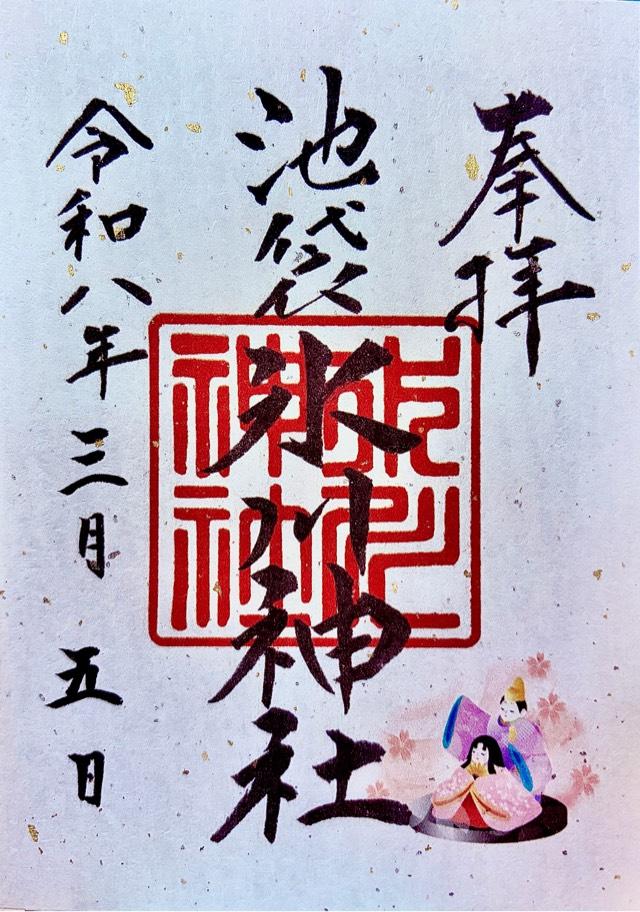 奉拝
池袋氷川神社
令和八年三月 五日
氷川
神社